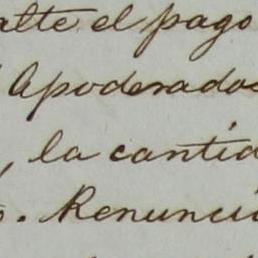 alte el pago
Apoderado
, la cantid
. Renunci